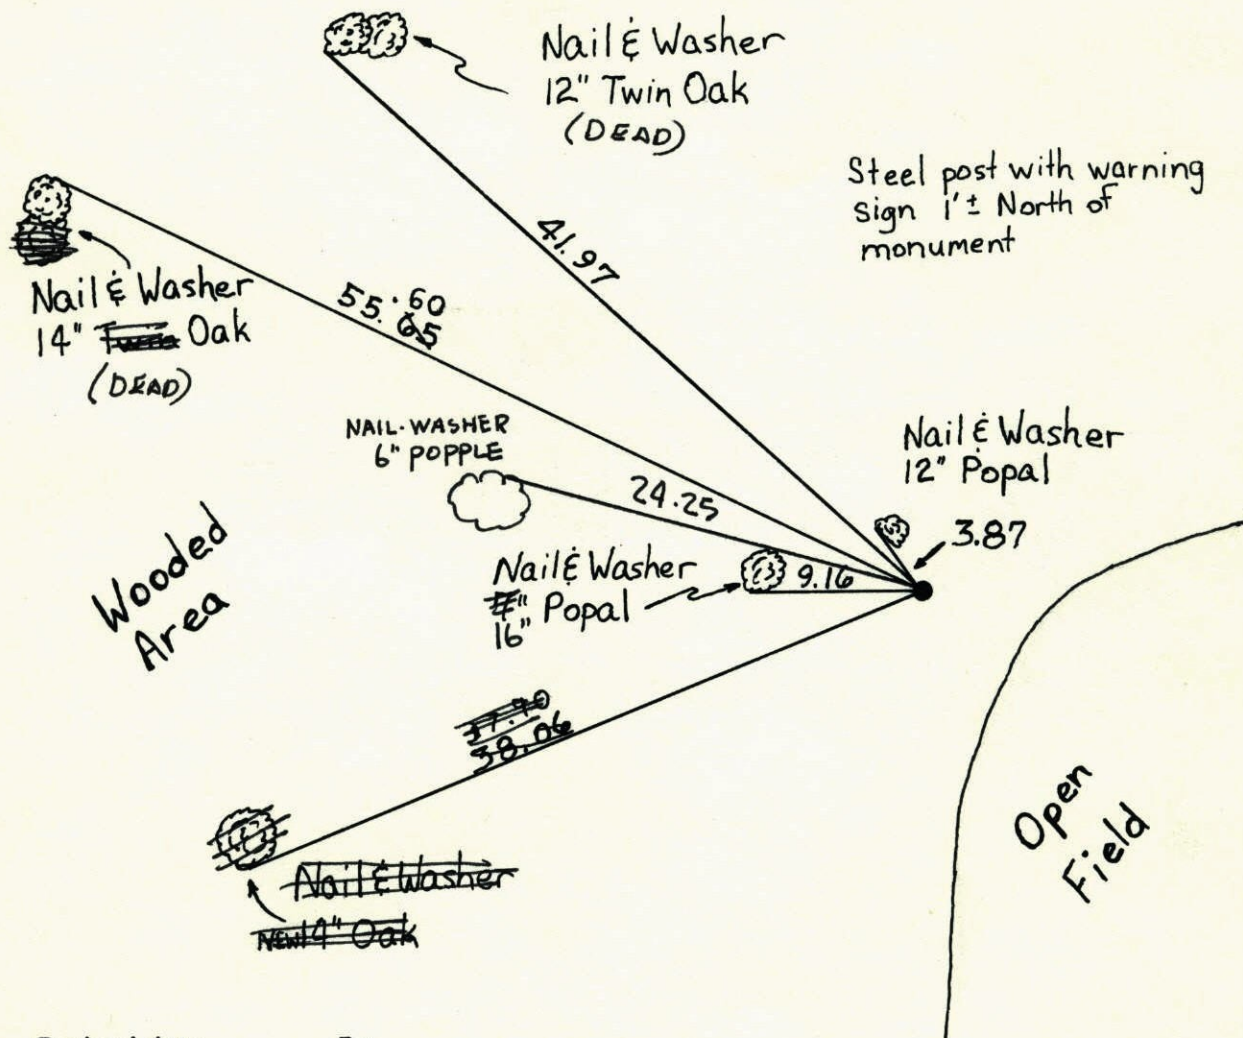 Nail & Washer
12" Twin Oak
(DEAD)
Steel post with warning
sign 1'± North of
monument
41.97
Nail & Washer
14" Twin Oak
(DEAD)
55.60
65
NAIL-WASHER
6" POPPLE
24.25
Nail & Washer
12" Popal
3.87
Nail & Washer
Popal
16"
9.16
Wooded
Area
38.06
Nail & Washer
NEW 14" Oak
Open
Field